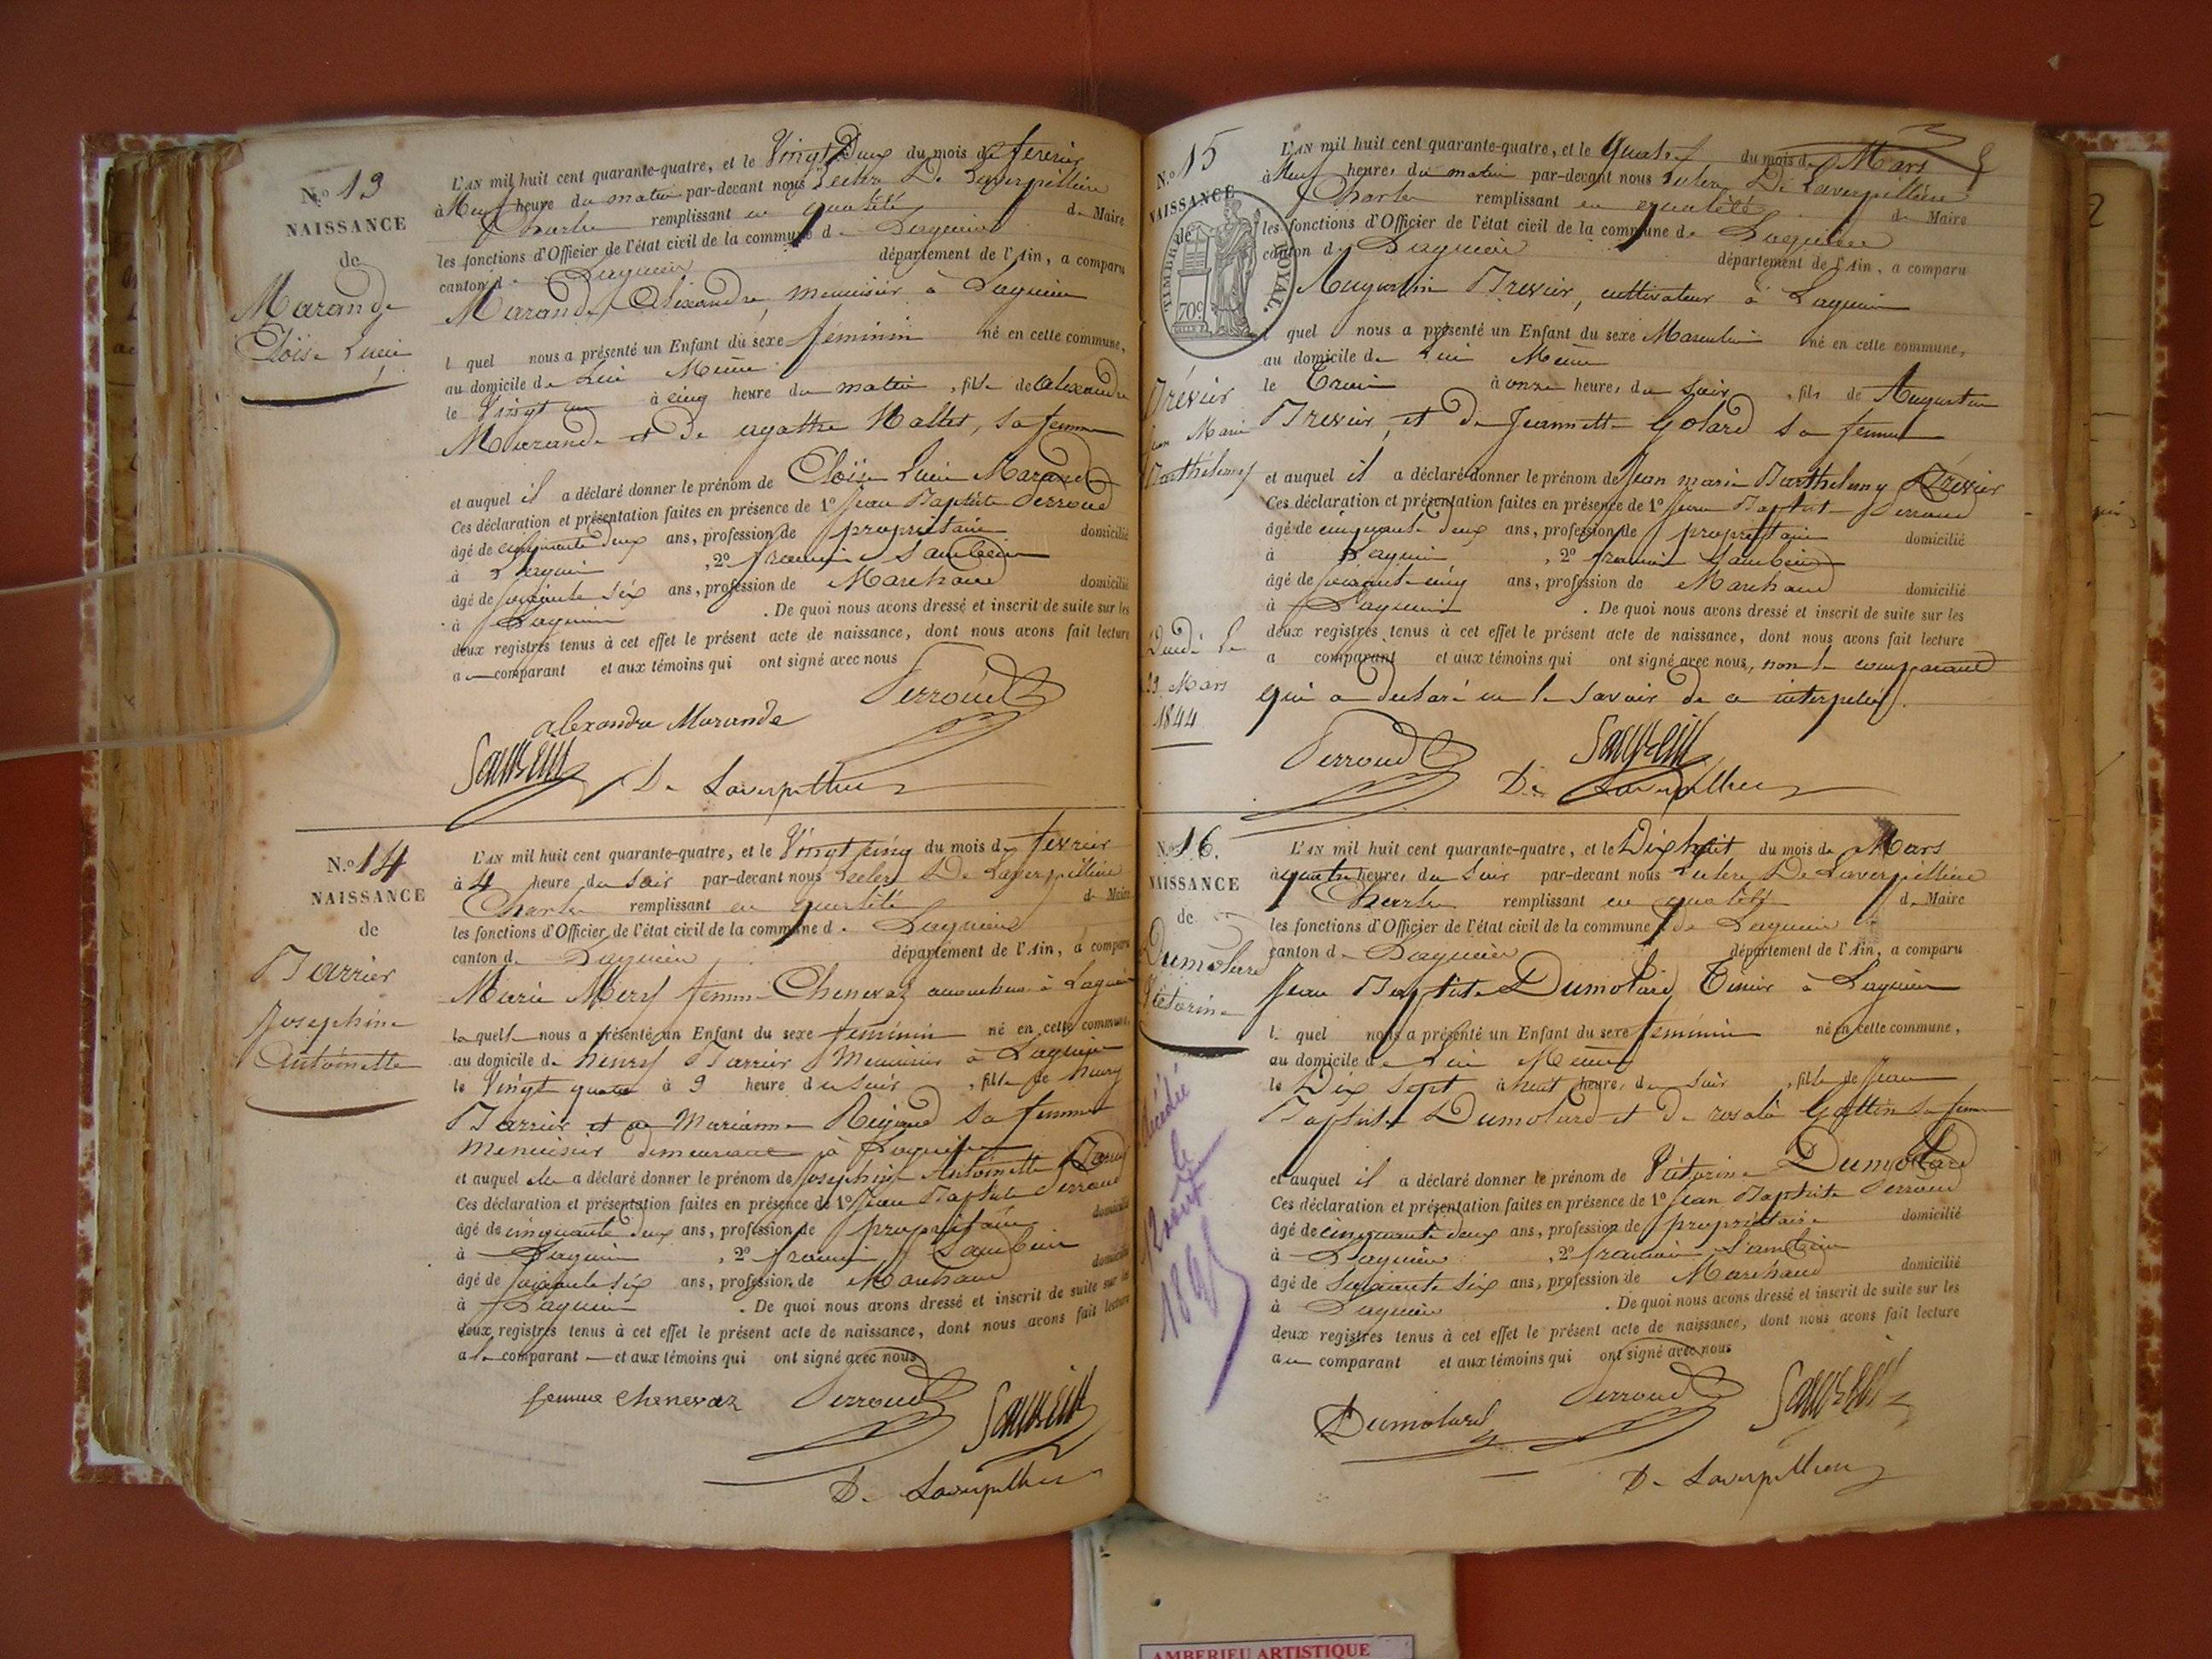 N.o 13
NAISSANCE
de
Marande
Cloïse Lucie
L'AN mil huit cent quarante-quatre, et le Vingt Deux du mois de fevrier
à Neuf heure du matin par-devant nous Leclerc De Laverpillière
Charles remplissant en qualité de Maire
les fonctions d'Officier de l'état civil de la commune de Lagnieu
canton de Lagnieu département de l'Ain, a comparu
Marande Alexandre, menuisier à Lagnieu
lequel nous a présenté un Enfant du sexe feminin né en cette commune,
au domicile de Lui Même
le Vingt un à cinq heure du matin, fille de Alexandre
Marande et de agathe Maltet, sa femme
et auquel il a déclaré donner le prénom de Cloïse Lucie Marande
Ces déclaration et présentation faites en présence de 1o Jean Baptiste Perroud
âgé de cinquante deux ans, profession de propriétaire domicilié
à Lagnieu, 2o françois Sambein
âgé de soixante six ans, profession de Marchand domicilié
à Lagnieu. De quoi nous avons dressé et inscrit de suite sur les
deux registres tenus à cet effet le présent acte de naissance, dont nous avons fait lecture
au comparant et aux témoins qui ont signé avec nous
Perroud
alexandre Marande
Sambein
De Laverpilliere
N.o 14
NAISSANCE
de
Barrier
Josephine
Antoinette
L'AN mil huit cent quarante-quatre, et le Vingt cinq du mois de fevrier
à 4 heure du soir par-devant nous Leclerc De Laverpillière
Charles remplissant en qualité de Maire
les fonctions d'Officier de l'état civil de la commune de Lagnieu
canton de Lagnieu département de l'Ain, a comparu
Marie Mery femme Chenevaz à Lagnieu
laquelle nous a présenté un Enfant du sexe feminin né en cette commune,
au domicile de henry Barrier Menuisier à Lagnieu
le Vingt quatre à 9 heure du soir, fille de henry
Barrier et de Marianne sa femme
menuisier demeurant à Lagnieu
et auquel elle a déclaré donner le prénom de Josephine Antoinette Barrier
Ces déclaration et présentation faites en présence de 1o Jean Baptiste Perroud
âgé de cinquante deux ans, profession de propriétaire domicilié
à Lagnieu, 2o françois Sambein
âgé de soixante six ans, profession de Marchand domicilié
à Lagnieu. De quoi nous avons dressé et inscrit de suite sur les
deux registres tenus à cet effet le présent acte de naissance, dont nous avons fait lecture
a la comparant et aux témoins qui ont signé avec nous
femme chenevaz Perroud Sambein
De Laverpilliere
N.o 15
NAISSANCE
de
TIMBRE ROYAL
70c
Trévier
Jean Marie
Barthélemy
Décédé le
29 Mars
1844
L'AN mil huit cent quarante-quatre, et le Quatre du mois de Mars
à Neuf heures du matin par-devant nous Leclerc De Laverpillière
Charles remplissant en qualité de Maire
les fonctions d'Officier de l'état civil de la commune de Lagnieu
canton de Lagnieu département de l'Ain, a comparu
Augustin Trevier, cultivateur à Lagnieu
lequel nous a présenté un Enfant du sexe Masculin né en cette commune,
au domicile de Lui Même
le Trois à onze heures du soir, fils de Augustin
Trevier, et de Jeannette Golard sa femme
et auquel il a déclaré donner le prénom de Jean marie Barthelemy Trévier
Ces déclaration et présentation faites en présence de 1o Jean Baptiste Perroud
âgé de cinquante deux ans, profession de propriétaire domicilié
à Lagnieu, 2o françois Sambein
âgé de soixante cinq ans, profession de Marchand domicilié
à Lagnieu. De quoi nous avons dressé et inscrit de suite sur les
deux registres tenus à cet effet le présent acte de naissance, dont nous avons fait lecture
a comparant et aux témoins qui ont signé avec nous, non le comparant
qui a declaré ne le savoir de ce interpellé.
Perroud Sambein
De Laverpilliere
N.o 16.
NAISSANCE
de
Dumolard
Victorine
décédé
le
12 août
L'AN mil huit cent quarante-quatre, et le Dix huit du mois de Mars
à quatre heures du soir par-devant nous Leclerc De Laverpillière
Charles remplissant en qualité de Maire
les fonctions d'Officier de l'état civil de la commune de Lagnieu
canton de Lagnieu département de l'Ain, a comparu
Jean Baptiste Dumolard à Lagnieu
lequel nous a présenté un Enfant du sexe feminin né en cette commune,
au domicile de Lui Même
le Dix sept à huit heures du soir, fille de Jean
Baptiste Dumolard et de rosalie Gottin sa femme
et auquel il a déclaré donner le prénom de Victorine Dumolard
Ces déclaration et présentation faites en présence de 1o Jean Baptiste Perroud
âgé de cinquante deux ans, profession de propriétaire domicilié
à Lagnieu, 2o françois Sambein
âgé de soixante six ans, profession de Marchand domicilié
à Lagnieu. De quoi nous avons dressé et inscrit de suite sur les
deux registres tenus à cet effet le présent acte de naissance, dont nous avons fait lecture
au comparant et aux témoins qui ont signé avec nous
Dumolard Perroud Sambein
De Laverpilliere
AMBERIEU ARTISTIQUE